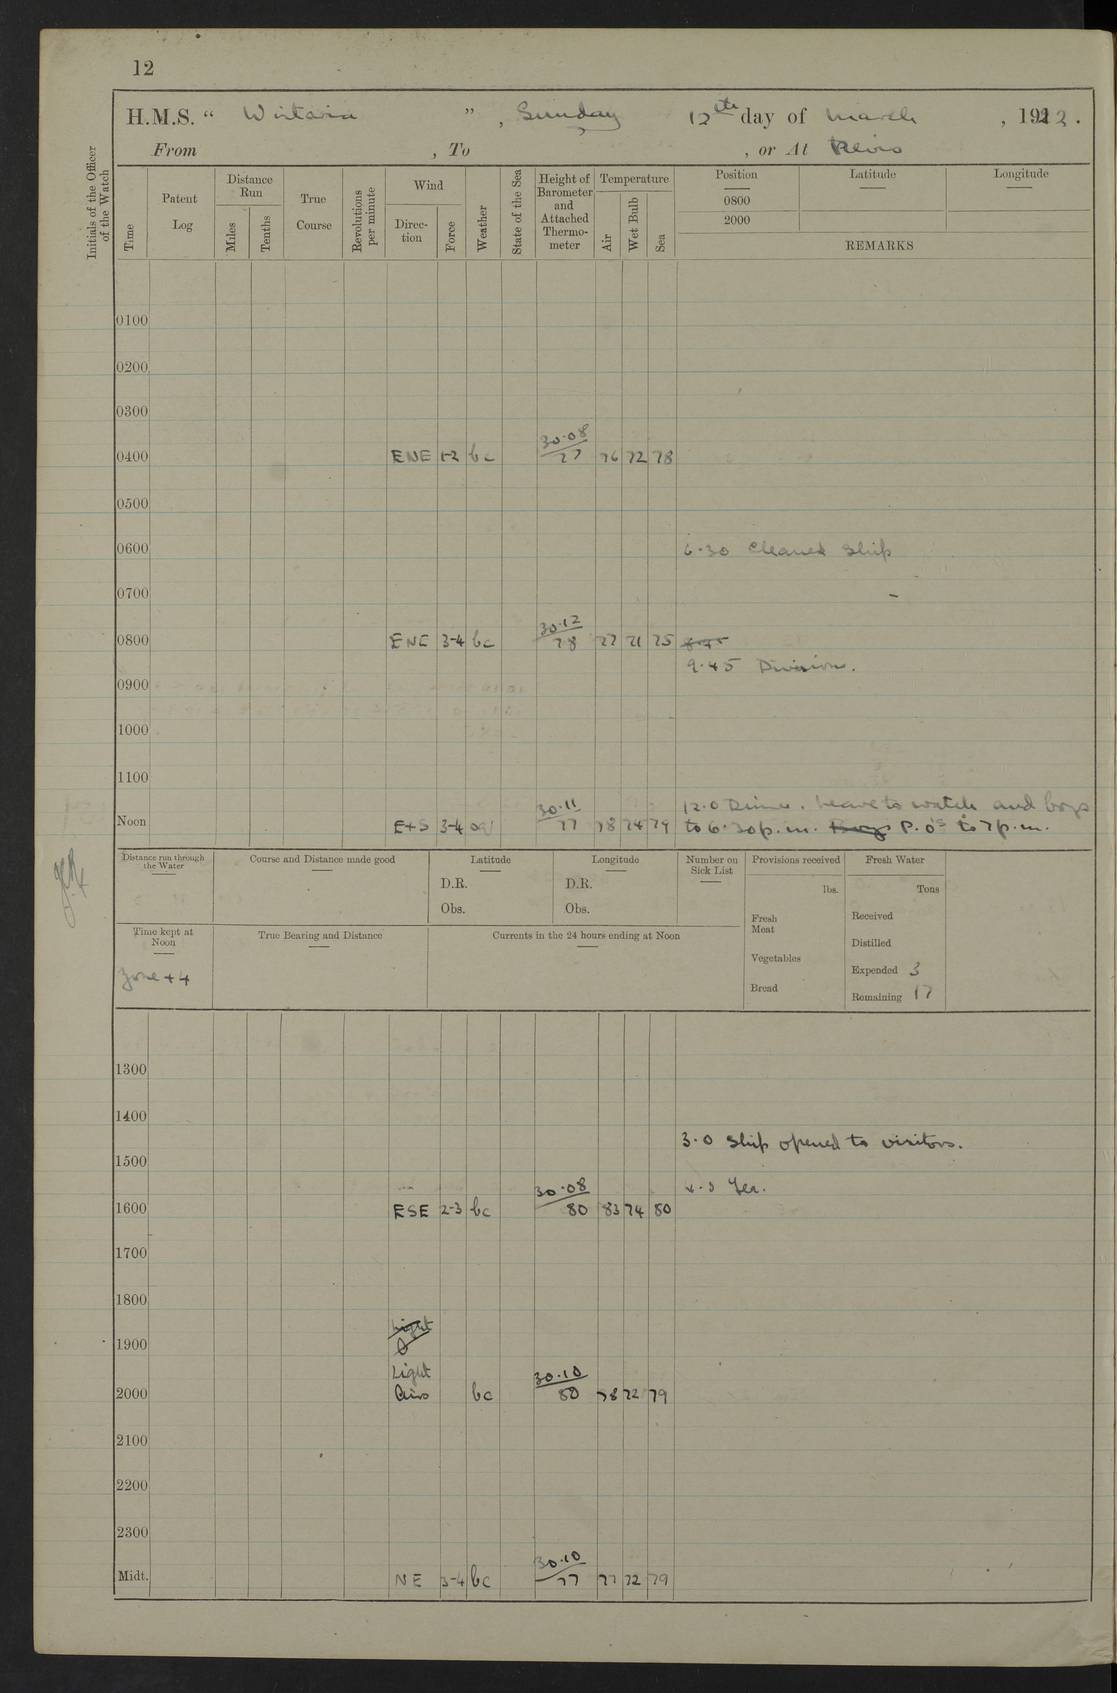 12
H.M.S. " Wistaria ", Sunday 12th day of March, 1922.
From , To , or At
Initials of the Officer of the Watch
Time
Patent Log
Distance Run
Miles Tenths
True Course
Revolutions per minute
Wind
Direction Force
Weather
State of the Sea
Height of Barometer and Attached Thermometer
Temperature
Air Wet Bulb Sea
Position Latitude Longitude
0800
2000
REMARKS
0100
0200
0300
0400 ENE 1-2 bc 30.08 77 76 72 78
0500
0600 6.30 Cleaned Ship
0700
0800 ENE 3-4 bc 30.12 78 77 71 75
9.45 Divisions.
0900
1000
1100
12.0 Dinner. Leave to watch and boys
Noon E+S 3-4 30.11 77 78 74 79 to 6.30 p.m. Boys P.O's to 7 p.m.
Distance run through the Water
Course and Distance made good
Latitude
D.R.
Obs.
Longitude
D.R.
Obs.
Number on Sick List
Provisions received
lbs.
Fresh Meat
Vegetables
Bread
Fresh Water
Tons
Received
Distilled
Expended 3
Remaining 17
Time kept at Noon
Zone +4
True Bearing and Distance
Currents in the 24 hours ending at Noon
1300
1400
3.0 Ship opened to visitors.
1500
1600 ESE 2-3 bc 30.08 80 83 74 80
1700
1800
Light
1900
Light
2000 Airs bc 30.10 80 78 72 79
2100
2200
2300
Midt. NE 3-4 bc 30.10 77 77 72 79